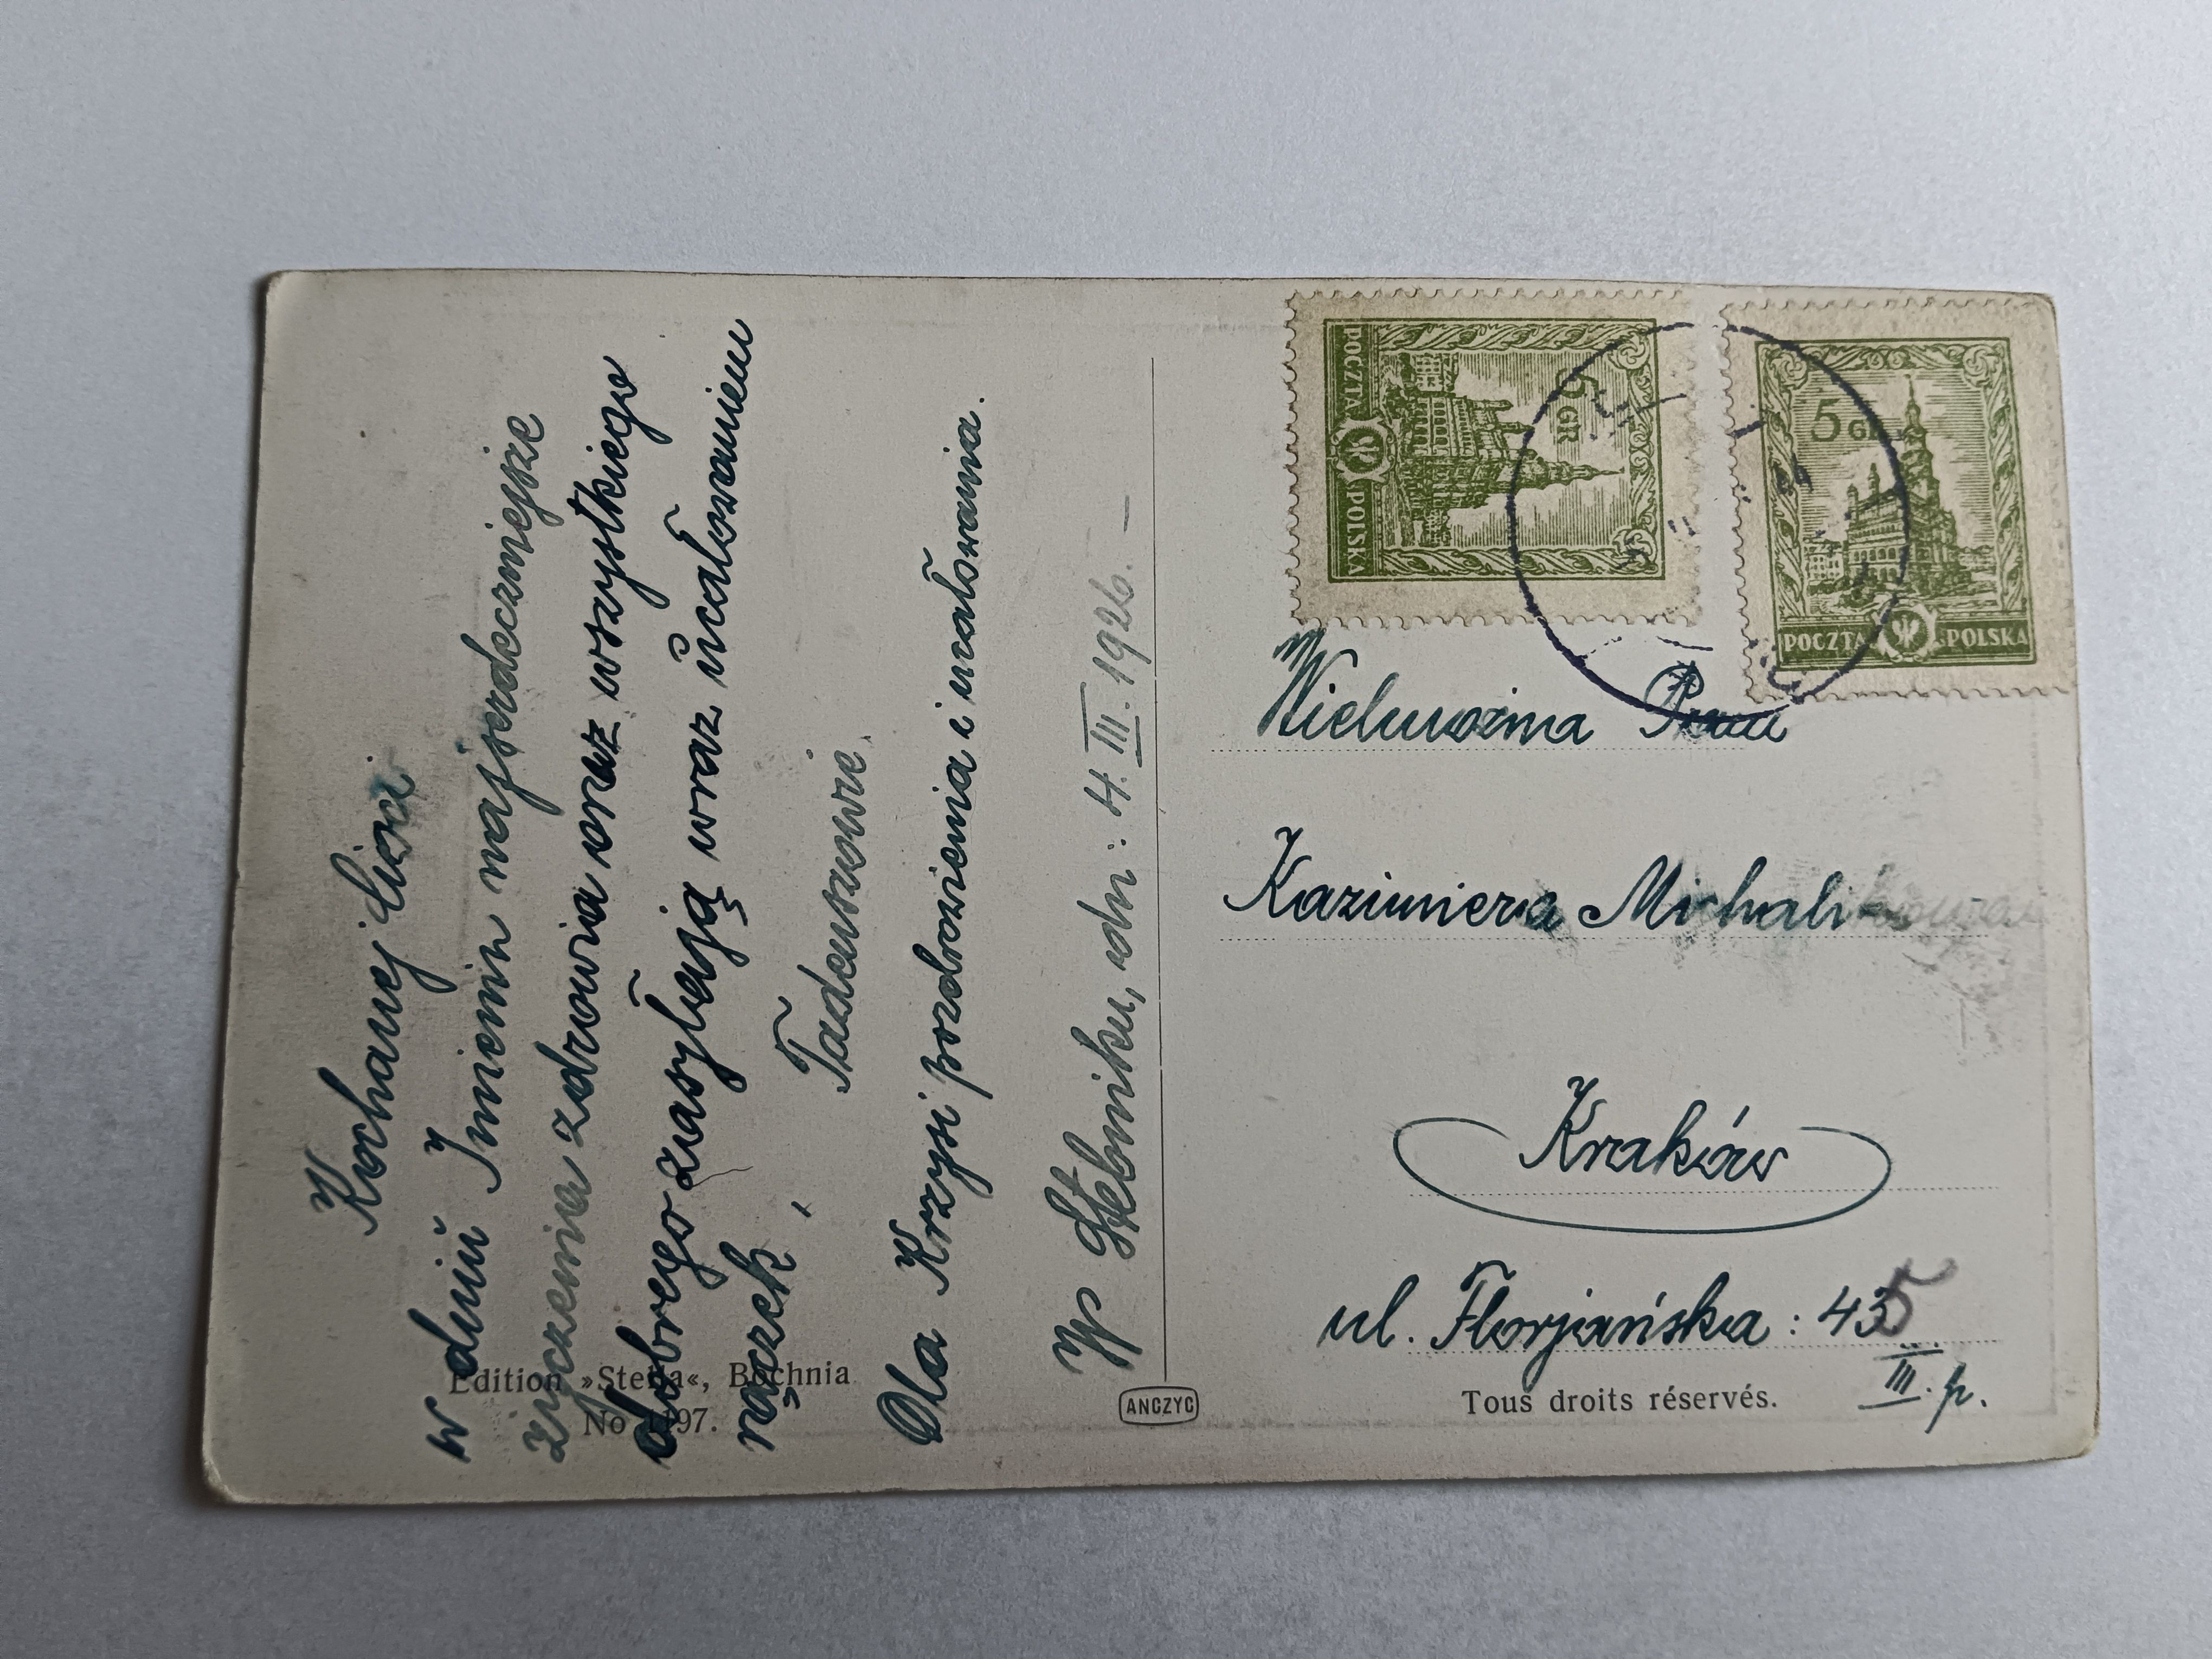 Kochanej Cioci
w dniu Imienin najserdeczniejsze
życzenia zdrowia oraz wszystkiego
dobrego zasyłają wraz z ucałowaniem
rączek,
Tadeuszowie.
Dla Krzysi pozdrowienia i ucałowania.
W Stebniku, dn: 4. III. 1926. –
Edition »Stella«, Bochnia
No 1197.
ANCZYC
POCZTA POLSKA
5 GR
5 GR
POCZTA POLSKA
Wielmożna Pani
Kazimiera Michalikowa
Kraków
ul. Florjańska: 45
III. p.
Tous droits réservés.